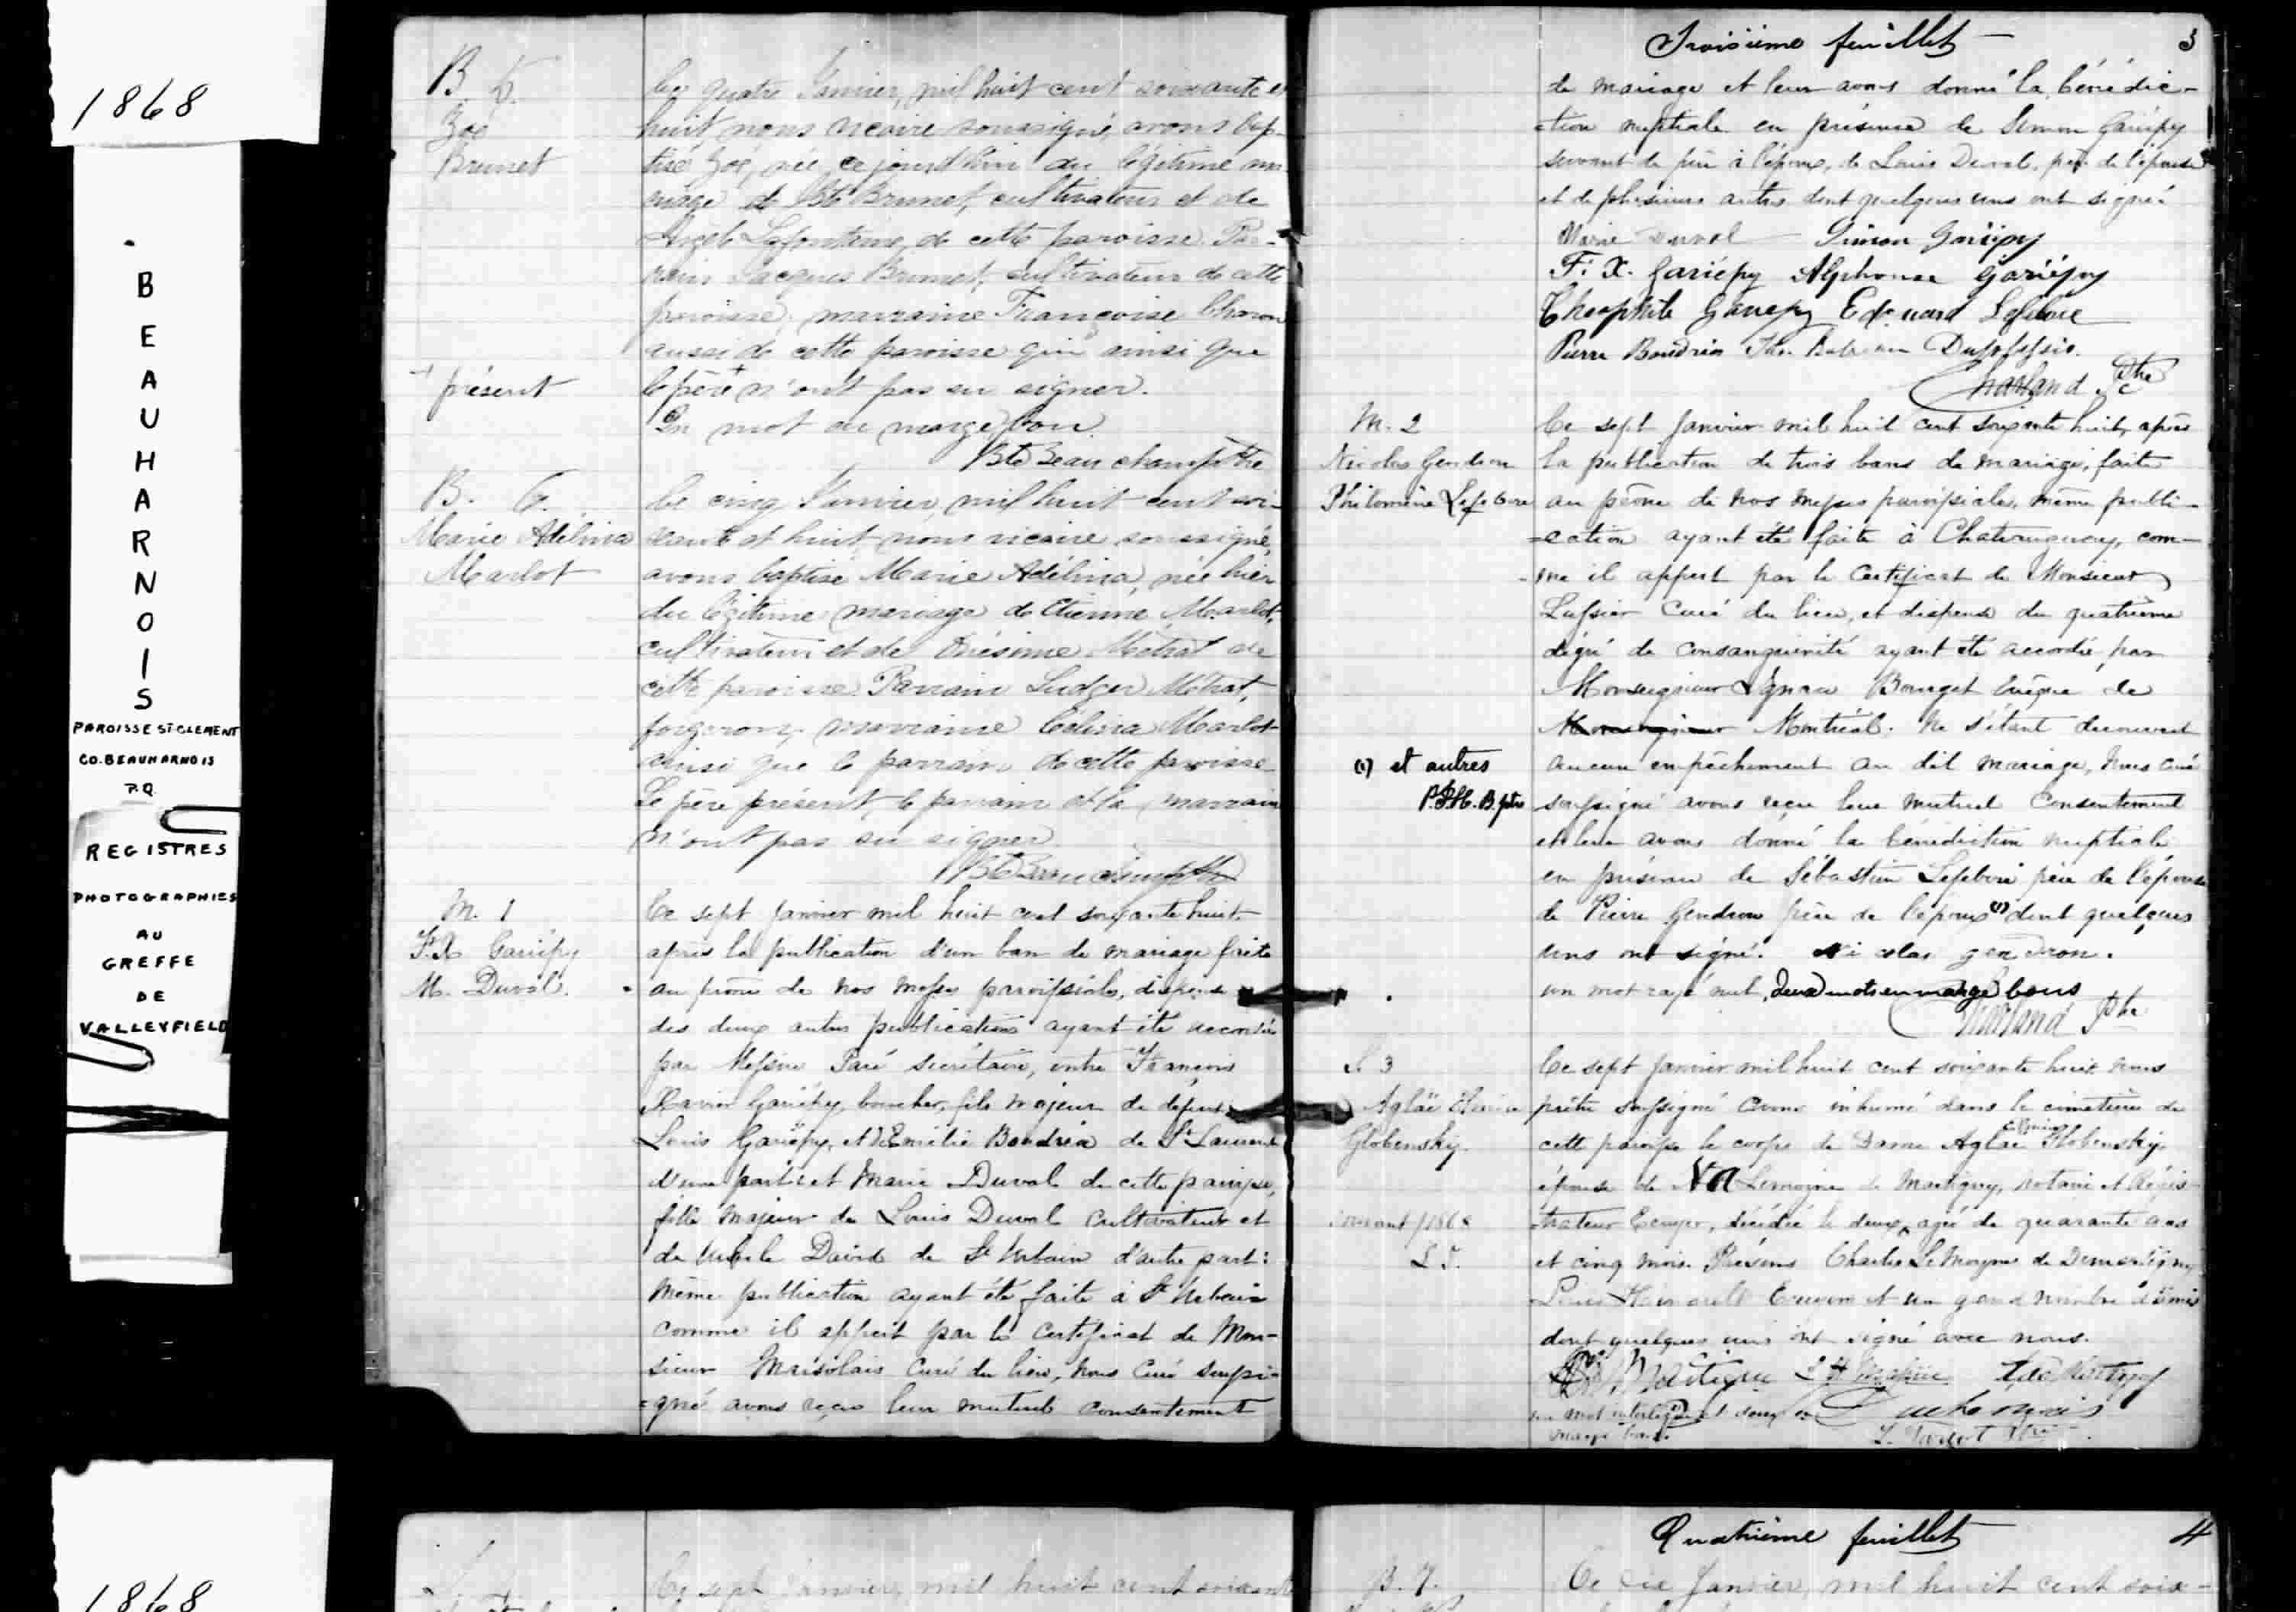 1868
BEAUHARNOIS
PAROISSE ST-CLEMENT
CO. BEAUHARNOIS
P.Q.
REGISTRES
PHOTOGRAPHIES
AU
GREFFE
DE
VALLEYFIELD
B 5.
Zoé
Brunet
Le quatre Janvier, mil huit cent soixante et
huit, nous vicaire soussigné, avons bap-
tisé Zoé, née ce jourd'hui du légitime ma
riage de Bte Brunet, cultivateur et de
Angele Lafontaine, de cette paroisse. Par-
rain Jacques Brunet, cultivateur de cette
paroisse, marraine Françoise
aussi de cette paroisse qui ainsi que
+ présent
le père + n'ont pas su signer.
Un mot en marge bon.
Bte Beauchamp Ptre
B. 6.
Marie Adélina
Marlot
Le cinq Janvier, mil huit cent soi-
xante et huit, nous vicaire soussigné,
avons baptisé Marie Adélina, née hier
du légitime mariage de Etienne Marlot,
cultivateur et de Onésime Métrat de
cette paroisse. Parrain Ludger Métrat,
forgeron, marraine Célina Marlot
ainsi que le parrain de cette paroisse
Le père présent, le parrain et la marraine
n'ont pas su signer.
Bte Beauchamp Ptre
M. 1
F.X. Gariépy
M. Duval.
Ce sept janvier mil huit cent soixante huit,
après la publication d'un ban de mariage faite
au prône de nos messes paroissiales, dispense
des deux autres publications ayant été accordée
par Messire Paré secrétaire, entre François
Xavier Gariépy, boucher, fils majeur de defunt
Louis Gariépy, et d'Emélie Boudria de St Laurent
d'une part: et Marie Duval de cette paroisse,
fille majeur de Louis Duval cultivateur et
de David de St Urbain d'autre part:
même publication ayant été faite à St Urbain
comme il appert par le certificat de Mon-
sieur Marsolais curé du lieu, nous curé soussi-
=gné avons reçu leur mutuel consentement
Troisième feuillet 3
de mariage et leur avons donné la bénédic-
=tion nuptiale en présence de Simon Gariépy
servant de père à l'époux, de Louis Duval, père de l'épouse
et de plusieurs autres dont quelques uns ont signé.
Marie Duval Simon Gariépy
F. X. Gariépy Alphonse Gariépy
Théophile Gariépy Edouard Lefebvre
Pierre Boudria
Charland Ptre
M. 2
Nicolas Gendron
Philomène Lefebvre
Ce sept janvier mil huit cent soixante huit, après
la publication de trois bans de mariage, faite
au prône de nos messes paroissiales, même publi-
=cation ayant été faite à Chateauguay, com-
-me il appert par le certificat de Monsieur
Lussier curé du lieu, et dispense du quatrième
dégré de consanguinité ayant été accordée par
Monseigneur Ignace Bourget évêque de
Monseigneur Montréal. Ne s'étant découvert
aucun empêchement au dit mariage, nous curé
(1) et autres
soussigné avons reçu leur mutuel consentement
et leur avons donné la bénédiction nuptiale
en présence de Sébastien Lefebvre père de l'épouse
de Pierre Gendron père de l'époux (1) dont quelques
uns ont signé. Nicolas gendron.
un mot rayé nul, deux mots en marge bons
Charland Ptre
S 3
Aglaë
Globensky.
Ce sept janvier mil huit cent soixante huit nous
prêtre soussigné avons inhumé dans le cimetière de
cette paroisse le corps de Dame Aglaë Globensky,
épouse de Lemoyne de Martigny, notaire et Régis-
trateur Ecuyer, décédée le deux, agée de quarante ans
courant /1868
L. T.
et cinq mois. Présens Charles LeMoyne de Demartigny
Louis Ecuyers et un grand nombre d'amis
dont quelques uns ont signé avec nous.
un mot interligne et deux en
marge bons.
L. Turcot Ptre
1868
Ce sept Janvier, mil huit cent soixante
Quatrième feuillet 4
B. 7.
Ce six Janvier, mil huit cent soix-